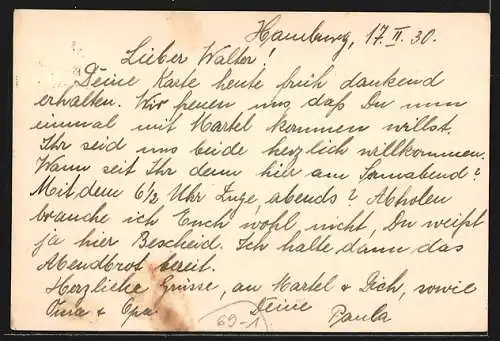 Hamburg, 17. II. 30.
Lieber Walter!
Deine Karte heute früh dankend
erhalten. Wir freuen uns, daß Du nun
einmal mit Martel kommen willst.
Ihr seid uns beide herzlich willkommen.
Wann seit Ihr denn hier am Sonnabend?
Mit dem 6½ Uhr Zuge, abends? Abholen
brauche ich Euch wohl nicht, Du weißt
ja hier Bescheid. Ich halte dann das
Abendbrot bereit.
Herzliche Grüsse, an Martel & Dich, sowie
Oma & Opa
Deine
Paula
69-1